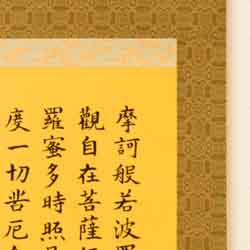 摩訶般若波
觀自在菩薩
羅蜜多時照
度一切苦厄